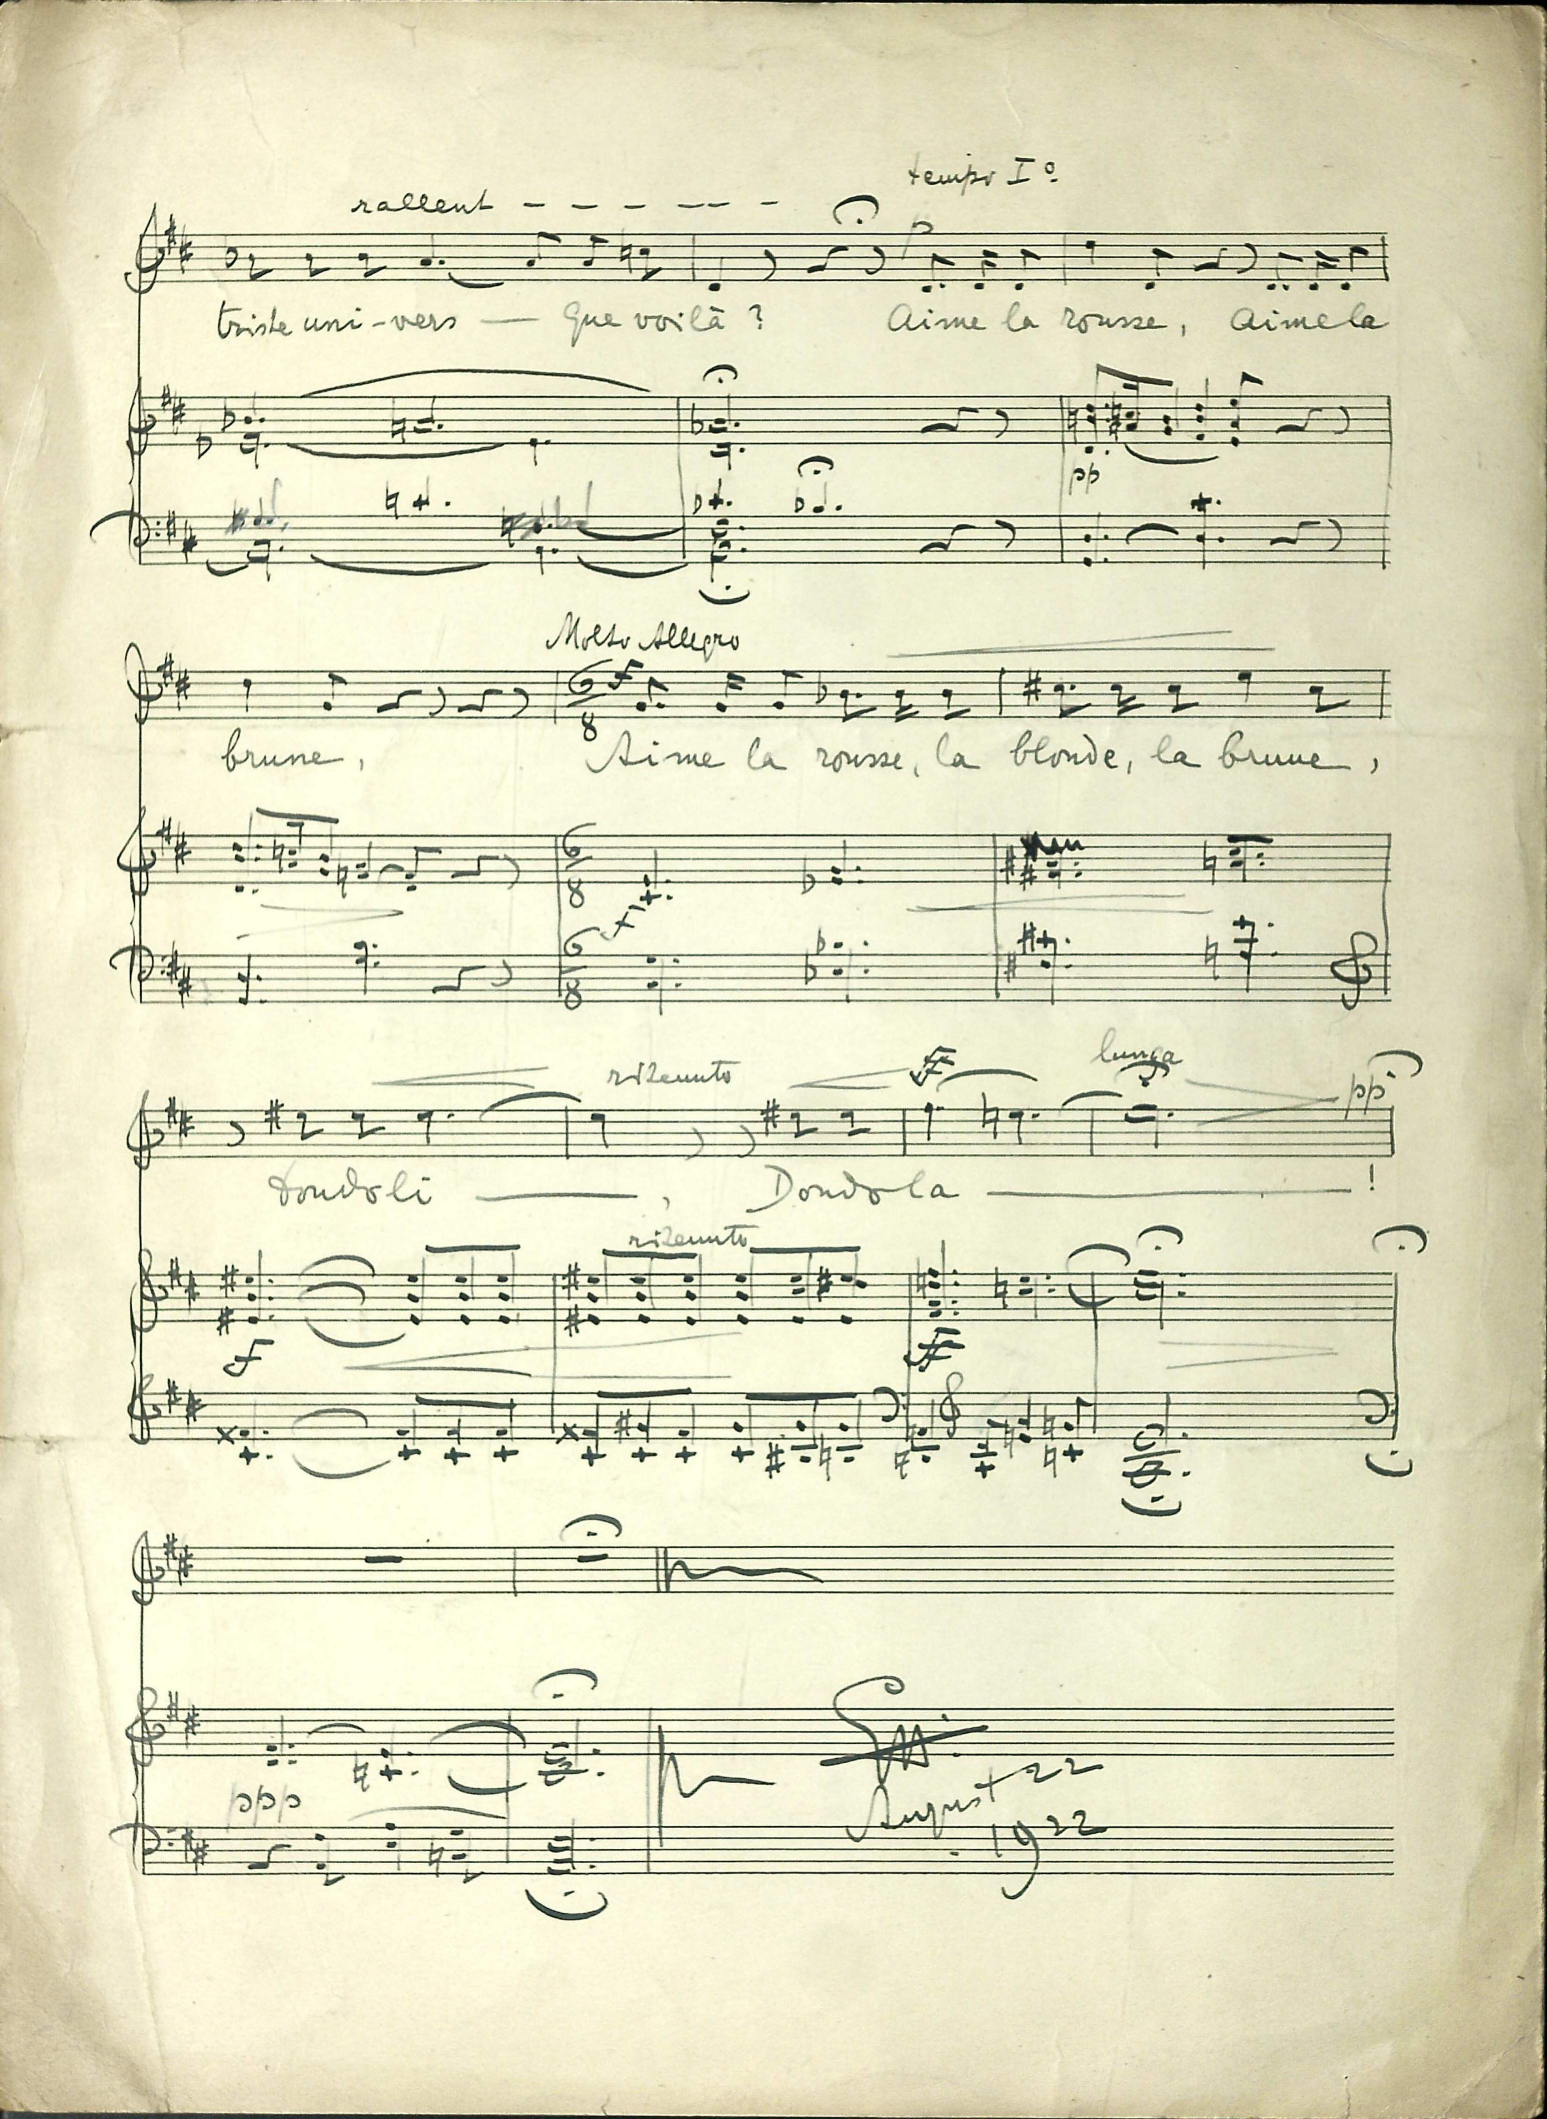 rallent
tempo Iº
p
triste uni-vers — Que voilà ? Aime la rousse, Aime la
pp
Molto Allegro
6/8 f
brune, Aime la rousse, la blonde, la brune,
6/8
f
6/8
lunga
ritenuto ff pp
Dondoli —, Dondola — !
ritenuto
f ff
ppp
August 22
1922